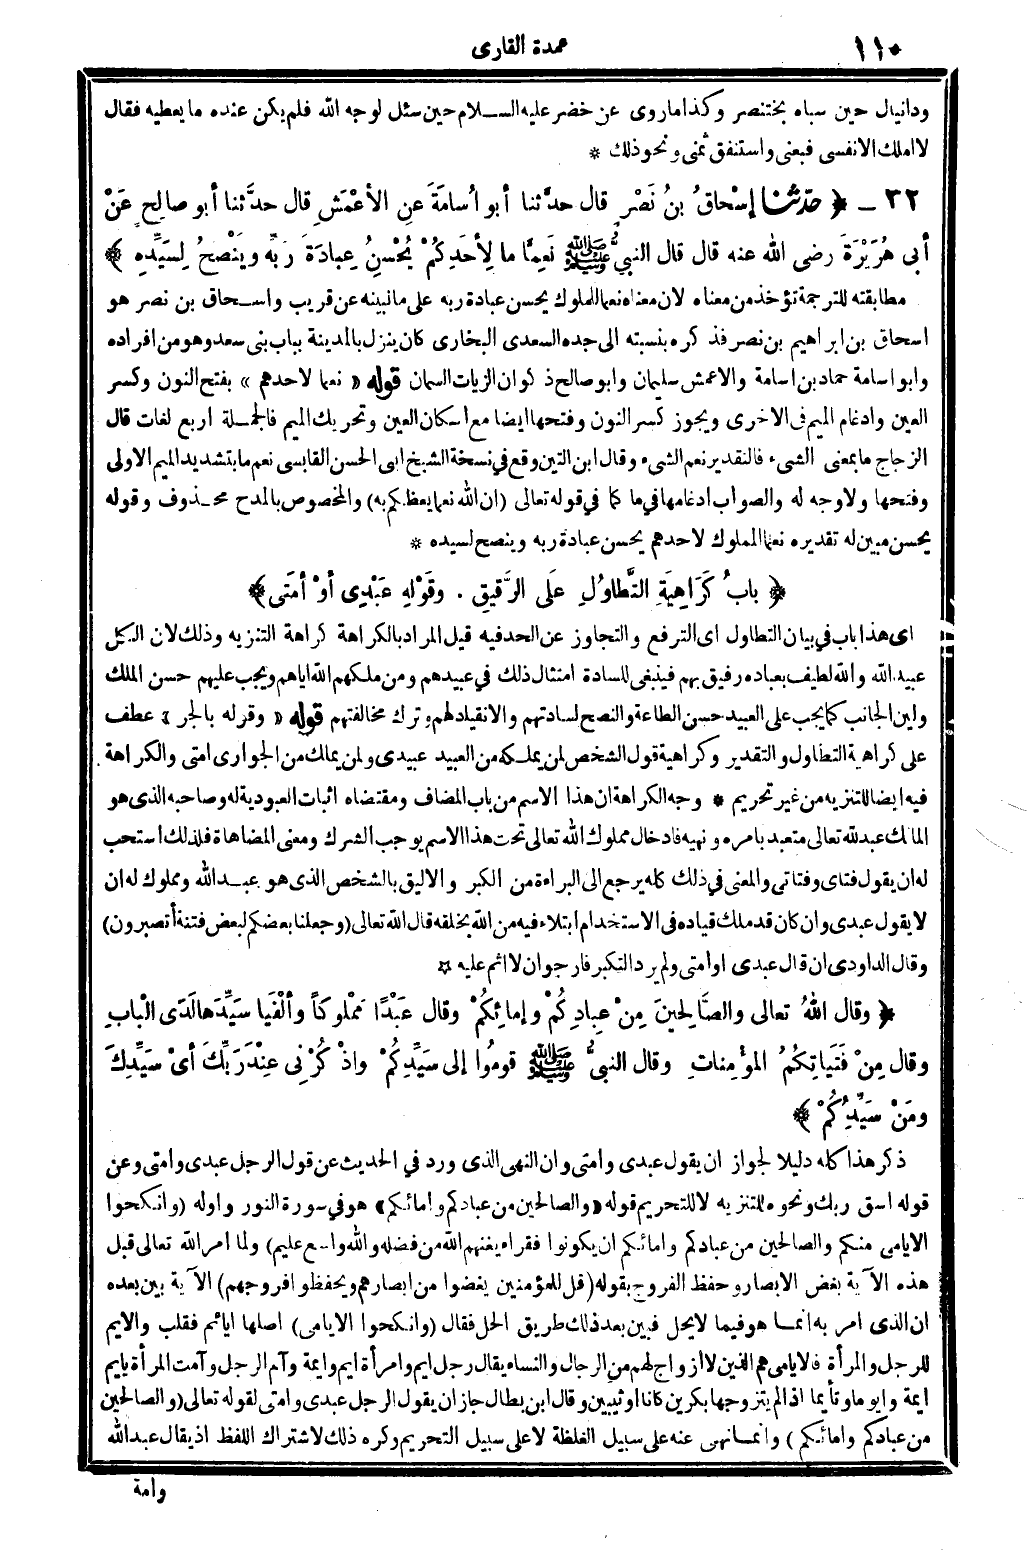 ١١٠ عمدة القارى
ودانيال حين سباه بختنصر وكذا ماروى عن خضر عليه السلام حين سئل لوجه الله فلم يكن عنده ما يعطيه فقال
لا املك الا نفسى فبعنى واستنفق ثمنى ونحو ذلك *
٣٢ ـ ﴿ حدَّثنا إسْحاقُ بنُ نَصْرٍ قال حدَّثنا أبو أُسامَةَ عنِ الأعْمَشِ قال حدَّثنا أبو صالحٍ عَنْ
أبى هُرَيْرَةَ رضى الله عنه قال قال النبيُّ ﷺ نَعِمَّا ما لِأَحَدِكُمْ يُحْسِنُ عِبادَةَ رَبِّهِ ويَنْصَحُ لِسَيِّدِهِ ﴾
مطابقته للترجمة تؤخذ من معناه لان معناه نعما المملوك يحسن عبادة ربه على ما نبينه عن قريب واسحاق بن نصر هو
اسحاق بن ابراهيم بن نصر فذكره بنسبته الى جده السعدى البخارى كان ينزل بالمدينة بباب بنى سعد وهو من افراده
وابو اسامة حماد بن اسامة والاعمش سليمان وابو صالح ذكوان الزيات السمان قوله « نعما لاحدهم » بفتح النون وكسر
العين وادغام الميم فى الاخرى ويجوز كسر النون وفتحها ايضا مع اسكان العين وتحريك الميم فالجملة اربع لغات قال
الزجاج ما بمعنى الشىء فالتقدير نعم الشىء وقال ابن التين وقع فى نسخة الشيخ ابى الحسن القابسى نعم ما بتشديد الميم الاولى
وفتحها ولا وجه له والصواب ادغامها فى ما كما فى قوله تعالى (ان الله نعما يعظكم به) والمخصوص بالمدح محذوف وقوله
يحسن مبين له تقديره نعما المملوك لاحدهم يحسن عبادة ربه وينصح لسيده *
﴿ بابُ كَرَاهِيَةِ التَّطاوُلِ عَلَى الرَّقيقِ . وقَوْلِهِ عَبْدِى أوْ أمَتى ﴾
اى هذا باب فى بيان التطاول اى الترفع والتجاوز عن الحد فيه قيل المراد بالكراهة كراهة التنزيه وذلك لان الكل
عبيد الله والله لطيف بعباده رفيق بهم فينبغى للسادة امتثال ذلك فى عبيدهم ومن ملكهم الله اياهم ويجب عليهم حسن الملك
ولين الجانب كما يجب على العبيد حسن الطاعة والنصح لسادتهم والانقياد لهم وترك مخالفتهم قوله « وقوله بالجر » عطف
على كراهية التطاول والتقدير وكراهية قول الشخص لمن يملكه من العبيد عبيدى ولمن يملك من الجوارى امتى والكراهة
فيه ايضا للتنزيه من غير تحريم * وجه الكراهة ان هذا الاسم من باب المضاف ومقتضاه اثبات العبودية له وصاحبه الذى هو
المالك عبد لله تعالى متعبد بامره ونهيه فادخال مملوك الله تعالى تحت هذا الاسم يوجب الشرك ومعنى المضاهاة فلذلك استحب
له ان يقول فتاى وفتاتى والمعنى فى ذلك كله يرجع الى البراءة من الكبر والاليق بالشخص الذى هو عبد الله ومملوك له ان
لا يقول عبدى وان كان قد ملك قياده فى الاستخدام ابتلاء فيه من الله بخلقه قال الله تعالى (وجعلنا بعضكم لبعض فتنة أتصبرون)
وقال الداودى ان قال عبدى او امتى ولم يرد التكبر فارجو ان لا اثم عليه ☆
﴿ وقال اللهُ تعالى والصَّالِحِينَ مِنْ عِبادِكُمْ وإمائِكُمْ وقال عَبْدًا مَمْلوكاً وألْفَيا سَيِّدَها لَدَى الْبابِ
وقال مِنْ فَتَياتِكُمُ المؤْمِناتِ وقال النبيُّ ﷺ قومُوا إلى سَيِّدِكُمْ واذْكُرْنِى عِنْدَ رَبِّكَ أىْ سَيِّدِكَ
ومَنْ سَيِّدُكُمْ ﴾
ذكر هذا كله دليلا لجواز ان يقول عبدى وامتى وان النهى الذى ورد فى الحديث عن قول الرجل عبدى وامتى وعن
قوله اسق ربك ونحوه للتنزيه لا للتحريم قوله « والصالحين من عبادكم وامائكم » هو فى سورة النور واوله (وانكحوا
الايامى منكم والصالحين من عبادكم وامائكم ان يكونوا فقراء يغنهم الله من فضله والله واسع عليم) ولما امر الله تعالى قبل
هذه الآية بغض الابصار وحفظ الفروج بقوله (قل للمؤمنين يغضوا من ابصارهم ويحفظوا فروجهم) الآية بين بعده
ان الذى امر به انما هو فيما لا يحل فبين بعد ذلك طريق الحل فقال (وانكحوا الايامى) اصلها ايائم فقلب والايم
للرجل والمرأة فالايامى هم الذين لا ازواج لهم من الرجال والنساء يقال رجل ايم وامرأة ايم وايمة وآم الرجل وآمت المرأة يايم
ايمة وايوما وتأيما اذا لم يتزوجها بكرين كانا او ثيبين وقال ابن بطال جاز ان يقول الرجل عبدى وامتى لقوله تعالى (والصالحين
من عبادكم وامائكم) وانما نهى عنه على سبيل الغلظة لا على سبيل التحريم وكره ذلك لاشتراك اللفظ اذ يقال عبد الله
وامة